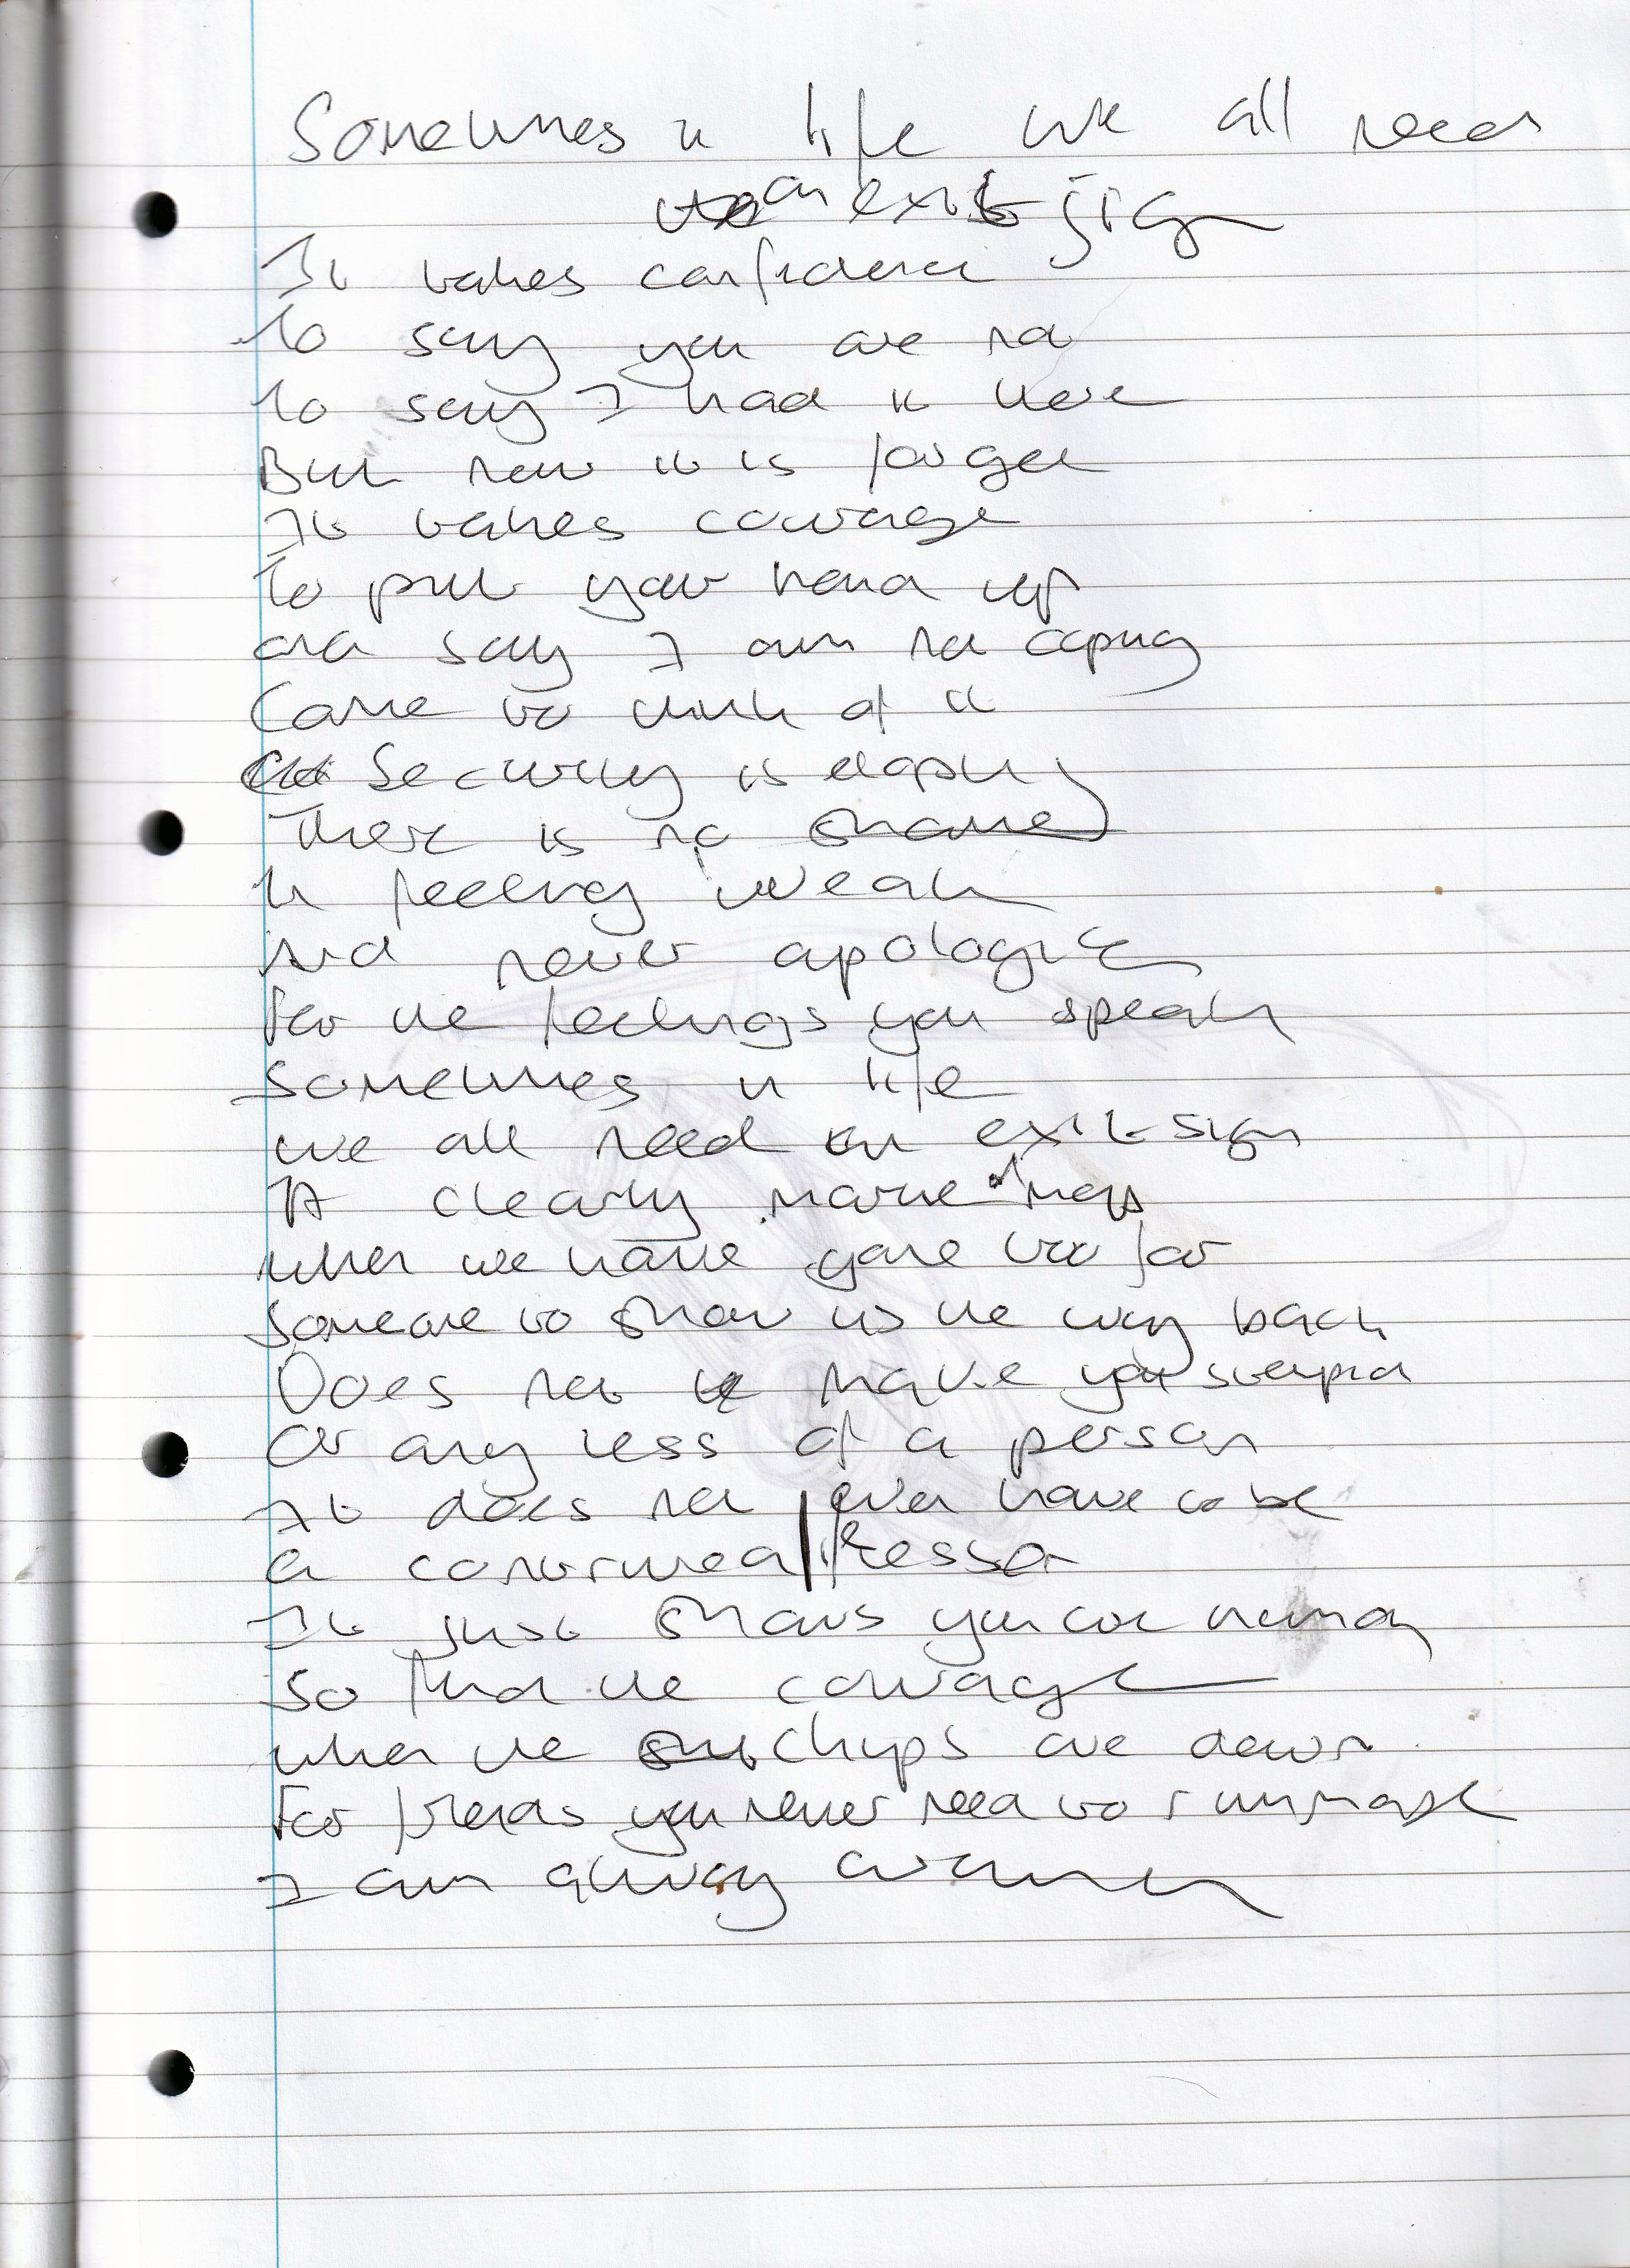 Sometimes in life we all need
an exit sign
It takes confidence
To say you are not
To say I had it here
But now it is forgot
It takes courage
To put your hand up
and say I am not coping
Come to think of it
Security is eloping
There is no shame
In feeling weak
And never apologize
For the feelings you speak
Sometimes in life
we all need an exit sign
A clearly marked map
when we have gone too far
Someone to show us the way back
Does not make you stupid
Or any less of a person
It does not even have to be
a continued lesson
It just shows you are human
So find the courage
when the chips are down
For friends you never need to rummage
I am always around